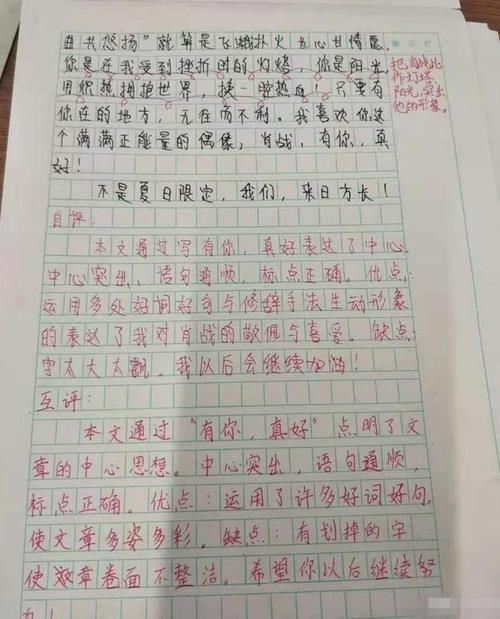 书悠扬"就算是飞蛾扑火也心甘情愿。
你是还我受到挫折时的灯塔,你是阳光,
用炽热拥抱世界,换一腔热血!只要有
你在的地方,无往而不利。我喜欢你这
个满满正能量的偶像,肖战,有你,真
好!
不是夏日限定,我们,来日方长!
把肖战比
作灯塔、
阳光,突出
他的形象。
自评:
本文通过写有你,真好表达了中心,
中心突出、语句通顺,标点正确。优点:
运用多处好词好句与修辞手法生动形象
的表达了我对肖战的敬佩与喜爱。缺点:
字太大太飘。我以后会继续加油!
互评:
本文通过"有你,真好"点明了文
章的中心思想。中心突出,语句通顺,
标点正确。优点:运用了许多好词好句,
使文章多姿多彩。缺点:有划掉的字
使文章卷面不整洁。希望你以后继续努
力!